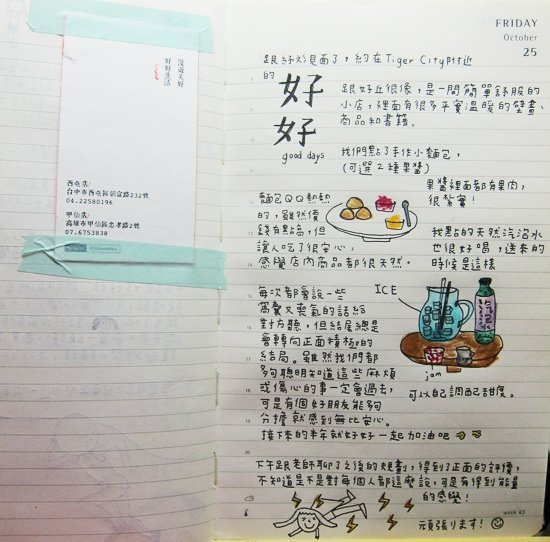 是最美好
好好生活
西屯店/
台中市西屯區朝富路232號
04.22580196
甲仙店/
高雄市甲仙區忠孝路2號
07.6753838
FRIDAY
October
25
跟紓彣見面了，約在Tiger City附近
的
好
好
good days
跟好丘很像，是一間簡單舒服的
小店，裡面有很多平實溫暖的壁畫、
商品和書籍。
我們點了手作小麵包，
(可選2種果醬)
果醬裡面都有果肉，
很紮實！
麵包QQ熱熱
的，雖然價
錢有點高，但
讓人吃了很安心，
感覺店內商品都很天然。
我點的天然汽泡水
也很好喝，送來的
時候是這樣
ICE
jam
可以自己調配甜度。
每次都會說一些
厲害又喪氣的話給
對方聽，但結尾總是
會轉向正面積極的
結局。雖然我們都
夠聰明知道這些麻煩
或傷心的事一定會過去，
可是有個好朋友能夠
分擔就感到無比安心。
接下來的半年就好好一起加油吧
下午跟老師聊GP3之後的規劃，得到了正面的評價，
不知道是不是對每個人都這麼說，可是有得到能量
的感覺！
頑張ります！
week 43